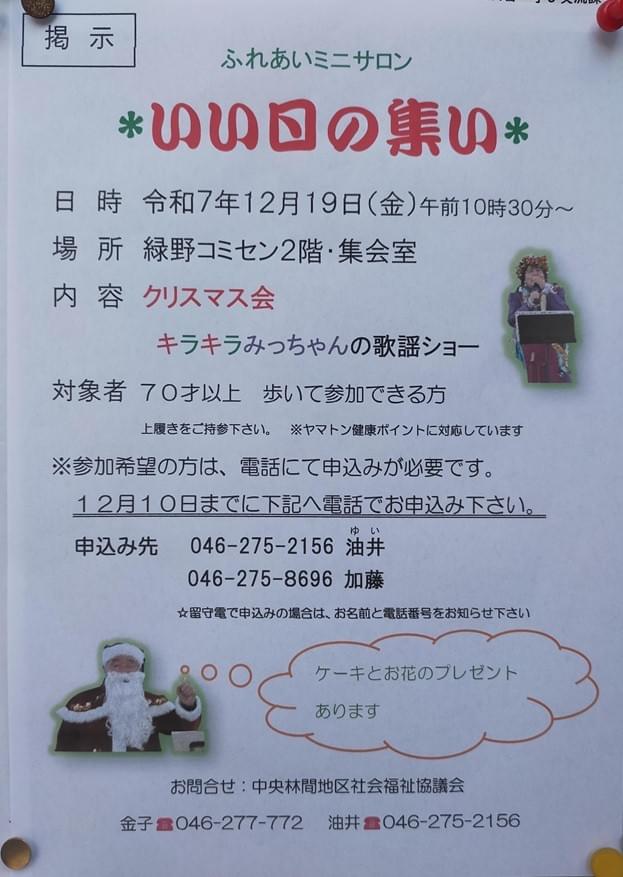 掲 示
ふれあいミニサロン
*いい日の集い*
日 時 令和7年12月19日(金)午前10時30分～
場 所 緑野コミセン2階・集会室
内 容 クリスマス会
キラキラみっちゃんの歌謡ショー
対象者 70才以上 歩いて参加できる方
上履きをご持参下さい。 ※ヤマトン健康ポイントに対応しています
※参加希望の方は、電話にて申込みが必要です。
12月10日までに下記へ電話でお申込み下さい。
ゆ い
申込み先 046-275-2156 油井
046-275-8696 加藤
☆留守電で申込みの場合は、お名前と電話番号をお知らせ下さい
ケーキとお花のプレゼント
あります
お問合せ：中央林間地区社会福祉協議会
金子☎046-277-772 油井☎046-275-2156